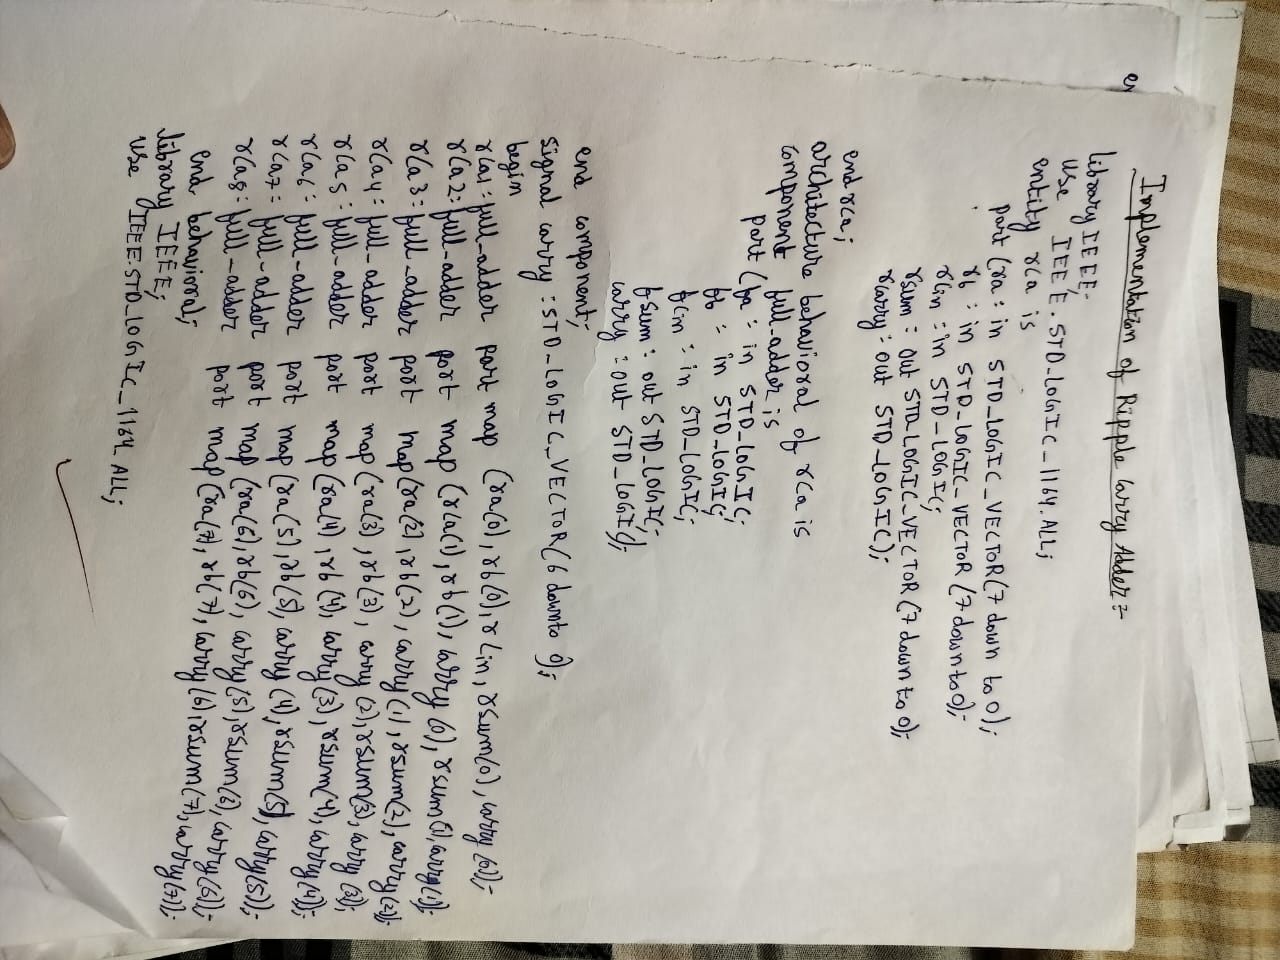 Implementation of Ripple Carry Adder:-
er
library IEEE;
use IEEE.STD_LOGIC_1164.ALL;
entity rca is
port (ra : in STD_LOGIC_VECTOR(7 down to 0);
rb : in STD_LOGIC_VECTOR (7 down to 0);
rCin : in STD_LOGIC;
rsum : out STD_LOGIC_VECTOR (7 down to 0);
rcarry : out STD_LOGIC);
end rca;
architecture behavioral of rca is
component full_adder is
port (fa : in STD_LOGIC;
fb : in STD_LOGIC;
fcin : in STD_LOGIC;
fsum : out STD_LOGIC;
carry : out STD_LOGIC);
end component;
signal carry : STD_LOGIC_VECTOR(6 downto 0);
begin
rca1 : full_adder port map (ra(0), rb(0), rCin, rsum(0), carry(0));
rca2 : full_adder port map (rca(1), rb(1), carry(0), rsum(1), carry(1));
rca3 : full_adder port map (ra(2), rb(2), carry(1), rsum(2), carry(2));
rca4 : full_adder port map (ra(3), rb(3), carry(2), rsum(3), carry(3));
rca5 : full_adder port map (ra(4), rb(4), carry(3), rsum(4), carry(4));
rca6 : full_adder port map (ra(5), rb(5), carry(4), rsum(5), carry(5));
rca7 : full_adder port map (ra(6), rb(6), carry(5), rsum(6), carry(6));
rca8 : full_adder port map (ra(7), rb(7), carry(6), rsum(7), carry(7));
end behavioral;
library IEEE;
use IEEE.STD_LOGIC_1164_ALL;